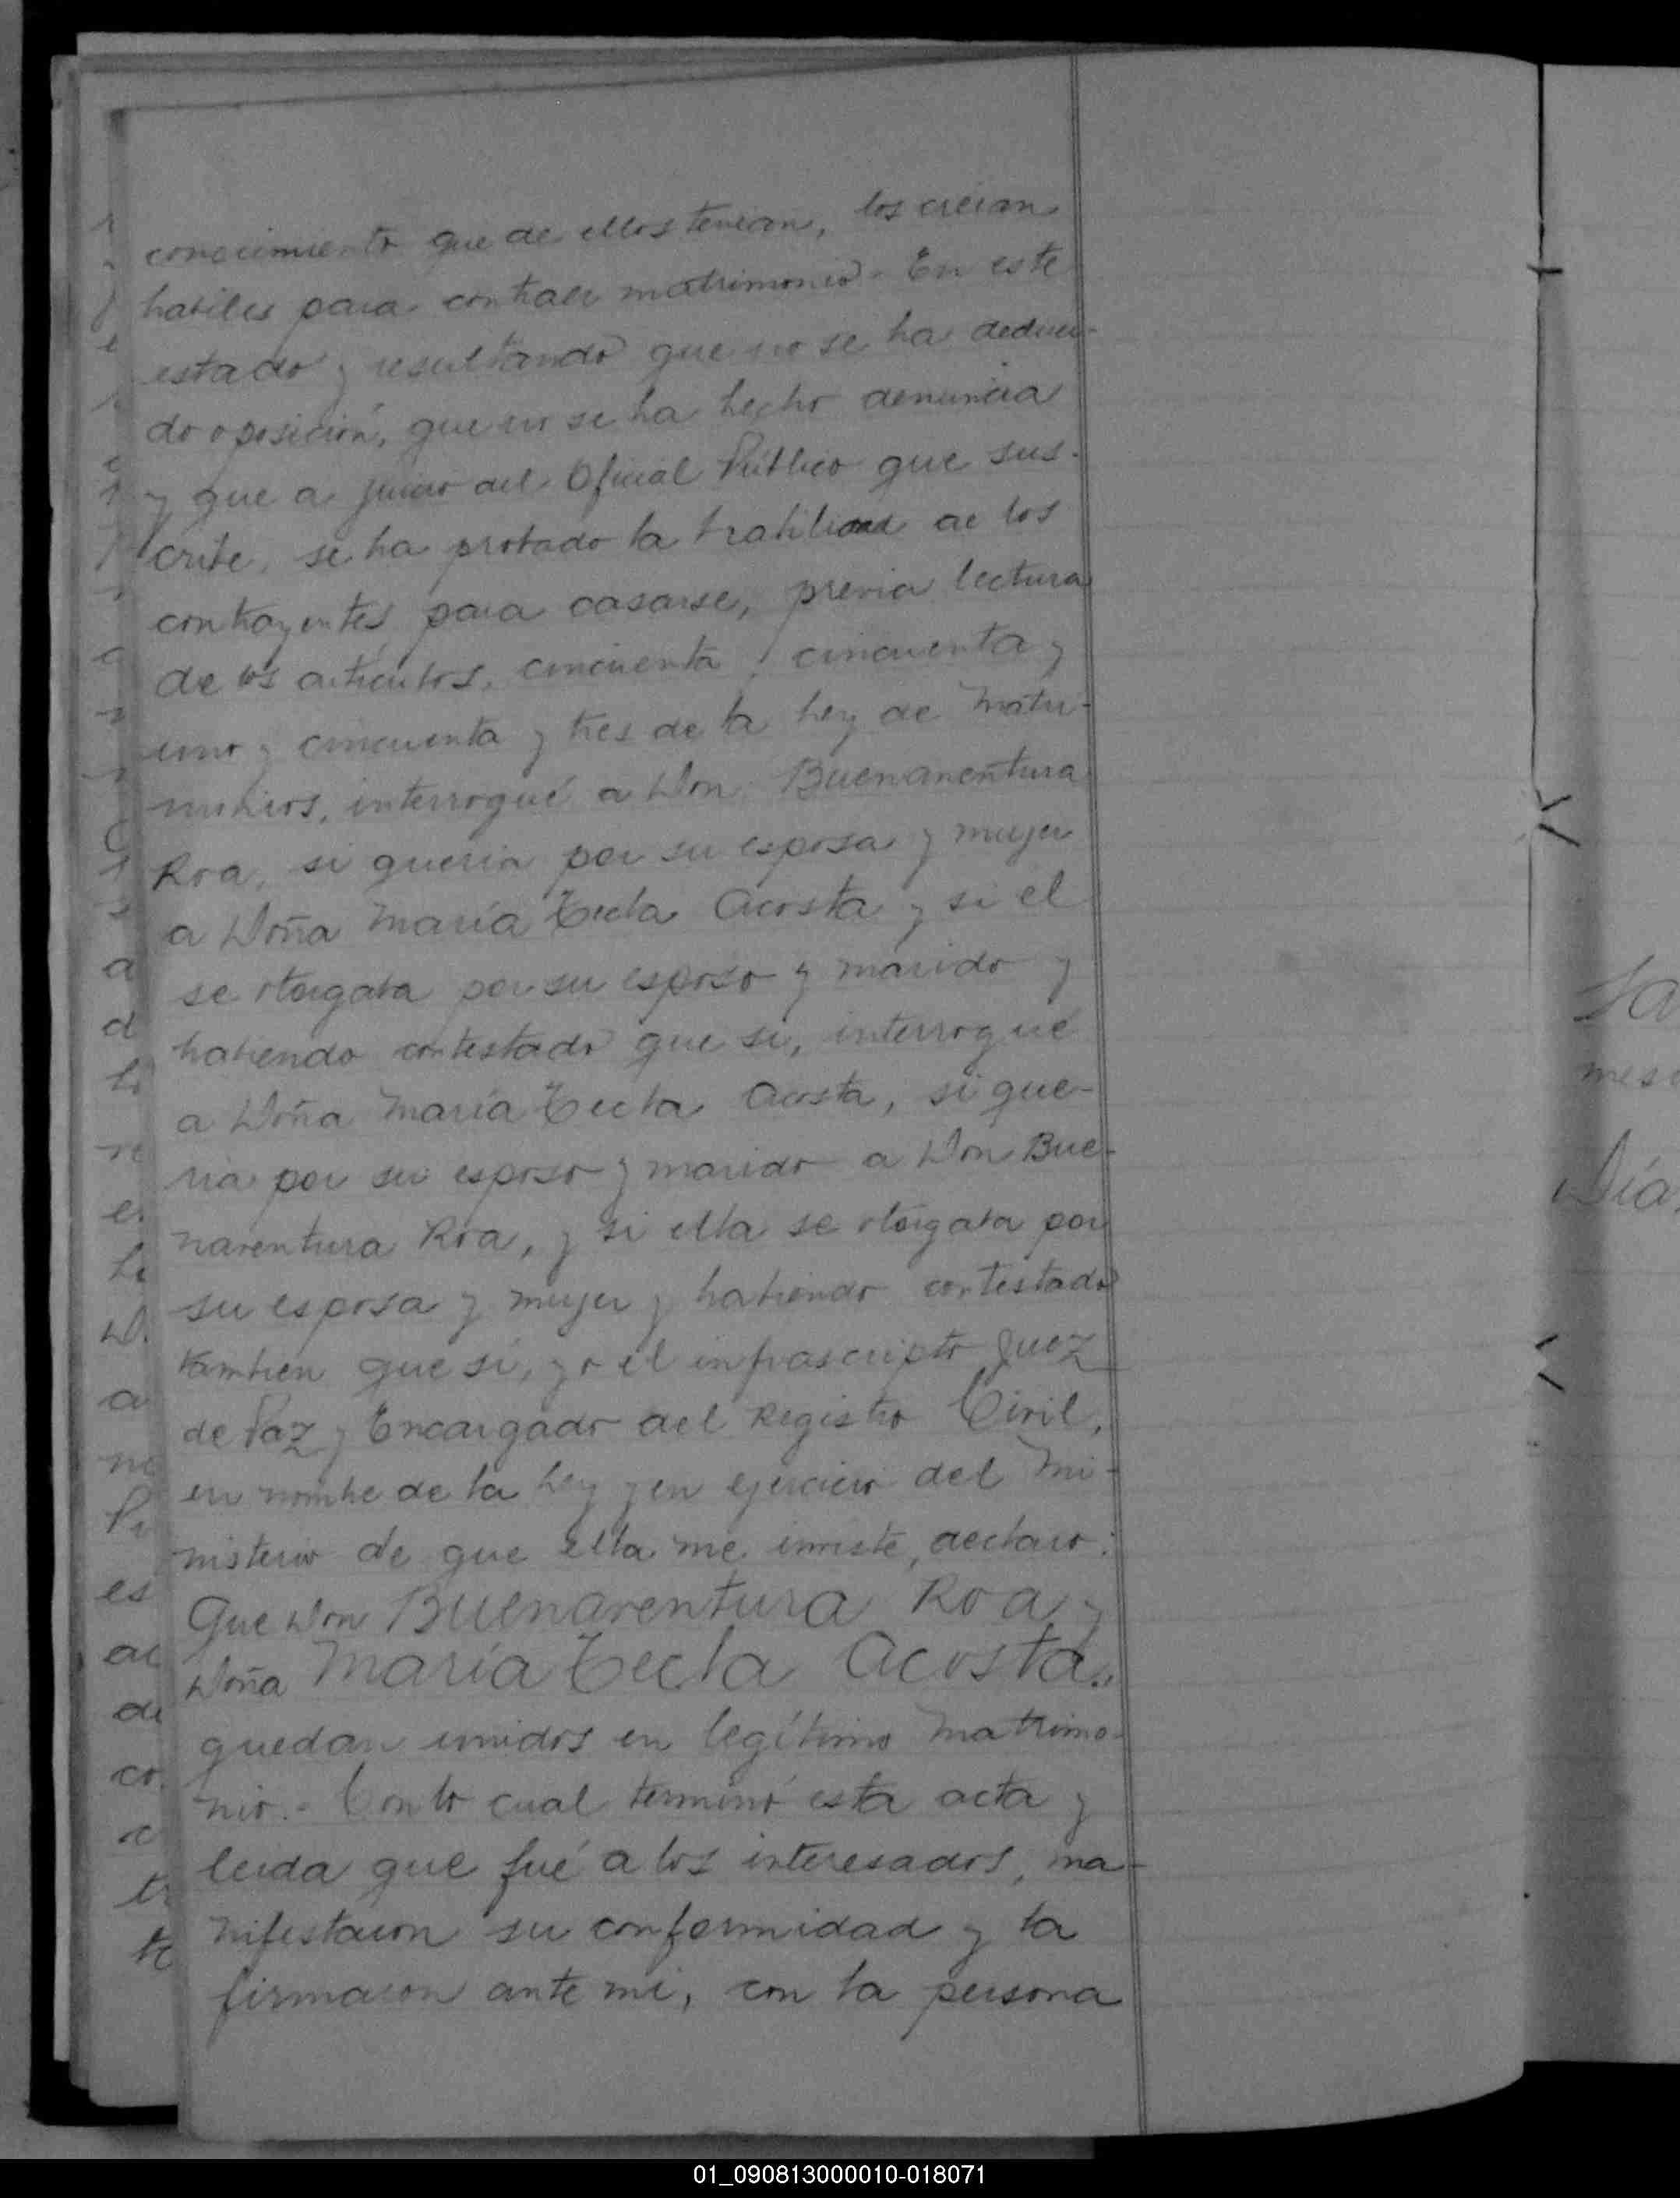 conocimiento que de ellos tenian, los creian
habiles para contraer matrimonio.- En este
estado y resultando que no se ha deduci-
do oposición, que no se ha hecho denuncia
y que a juicio del Oficial Público que sus-
cribe, se ha probado la habilidad de los
contrayentes para casarse, previa lectura
de los articulos, cincuenta, cincuenta y
uno y cincuenta y tres de la Ley de Matri-
monios, interrogué a Don Buenaventura
Roa, si queria por su esposa y mujer
a Doña María Tecla Acosta y si el
se otorgaba por su esposo y marido y
habiendo contestado que si, interrogué
a Doña María Tecla Acosta, si que-
ria por su esposo y marido a Don Bue-
naventura Roa, y si ella se otorgaba por
su esposa y mujer y habiendo contestado
tambien que si, yo el infrascripto Juez
de Paz y Encargado del Registro Civil,
en nombre de la Ley y en ejercicio del Mi-
nisterio de que ella me inviste, declaro:
Que Don Buenaventura Roa y
Doña María Tecla Acosta.,
quedan unidos en legítimo Matrimo-
nio.- Con lo cual terminó esta acta y
leida que fué a los interesados, ma-
nifestaron su conformidad y la
firmaron ante mi, con la persona
01_090813000010-018071